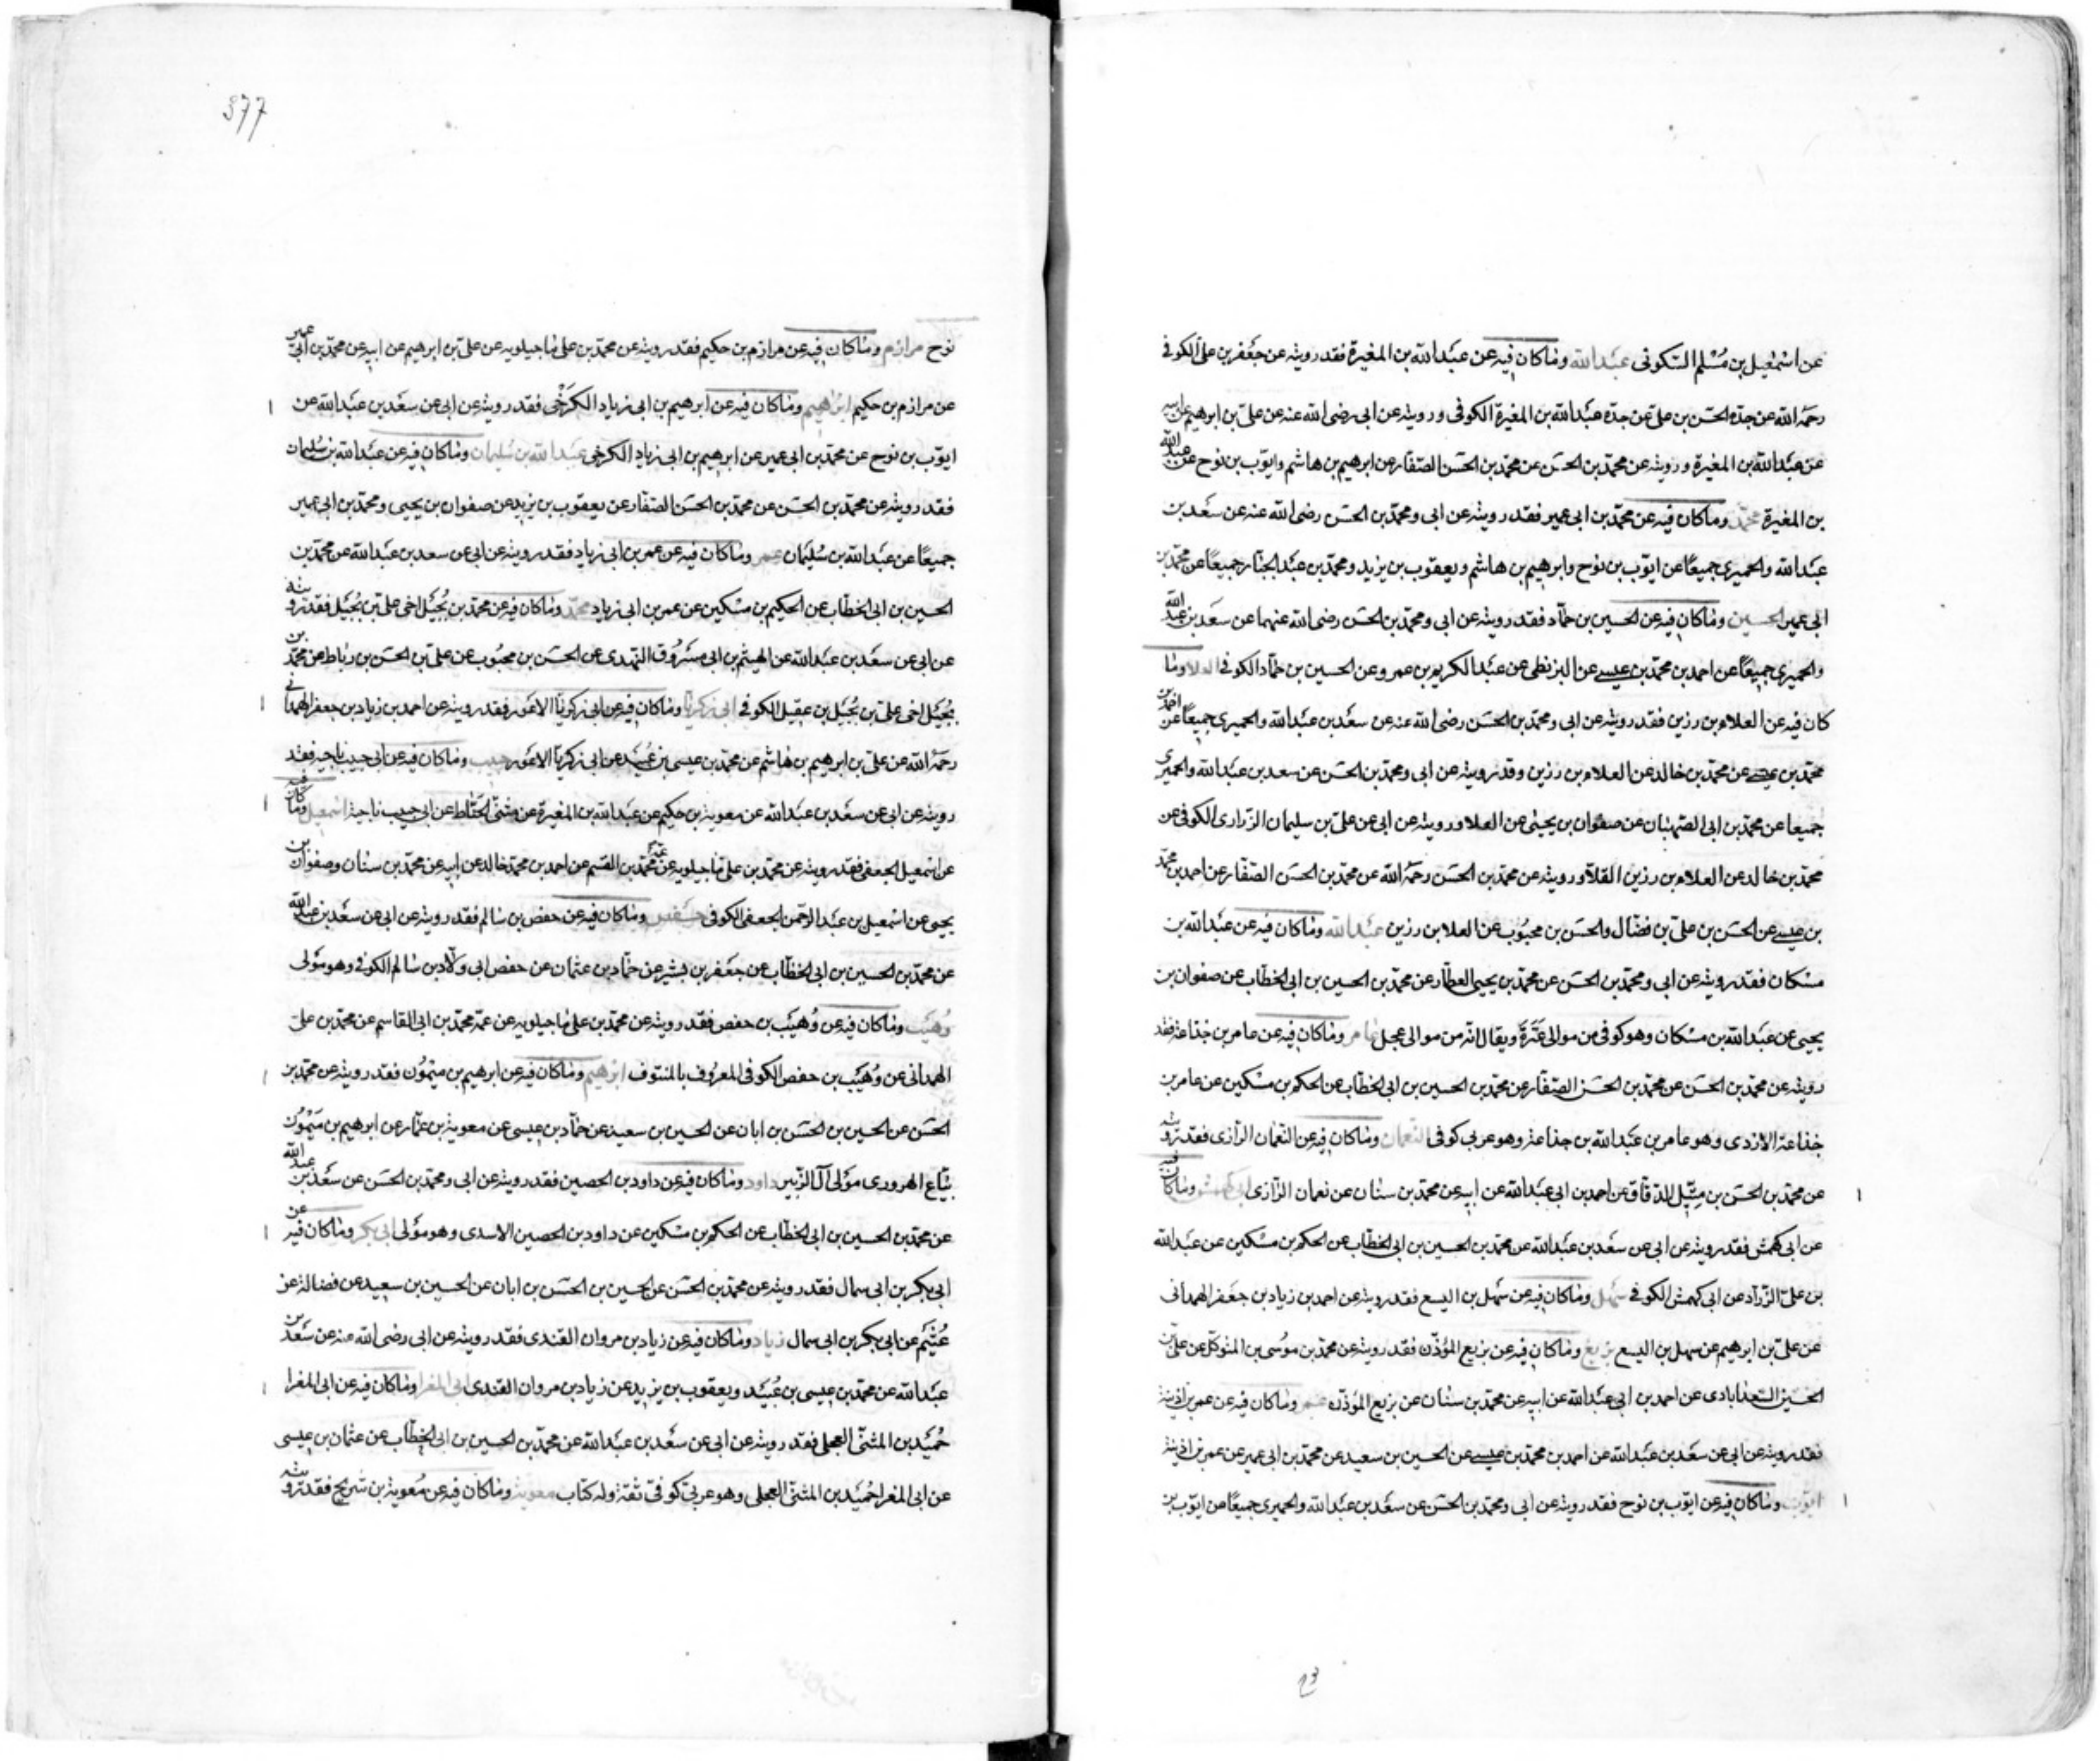 عن اسمعيل بن مسلم السكونى عبد الله وما كان فيه عن عبد الله بن المغيرة فقد رويته عن جعفر بن على الكوفى
رحمه الله عن جده الحسن بن على عن جده عبد الله بن المغيرة الكوفى ورويته عن ابى رضى الله عنه عن على بن ابرهيم عن ابيه
عن عبد الله بن المغيرة ورويته عن محمد بن الحسن عن محمد بن الحسن الصفار عن ابرهيم بن هاشم وايوب بن نوح عن عبد الله
بن المغيرة محمد وما كان فيه عن محمد بن ابى عمير فقد رويته عن ابى ومحمد بن الحسن رضى الله عنه عن سعد بن
عبد الله والحميرى جميعًا عن ايوب بن نوح وابرهيم بن هاشم ويعقوب بن يزيد ومحمد بن عبد الجبار جميعًا عن محمد بن
ابى عمير الحسين وما كان فيه عن الحسين بن حماد فقد رويته عن ابى ومحمد بن الحسن رضى الله عنهما عن سعد بن عبد الله
والحميرى جميعًا عن احمد بن محمد بن عيسى عن البزنطى عن عبد الكريم بن عمرو عن الحسين بن حماد الكوفى العلا وما
كان فيه عن العلاء بن رزين فقد رويته عن ابى ومحمد بن الحسن رضى الله عنه عن سعد بن عبد الله والحميرى جميعًا عن احمد بن
محمد بن عيسى عن محمد بن خالد عن العلاء بن رزين وقد رويته عن ابى ومحمد بن الحسن عن سعد بن عبد الله والحميرى
جميعا عن محمد بن ابى الصهبان عن صفوان بن يحيى عن العلا ورويته عن ابى عن على بن سليمان الزرارى الكوفى عن
محمد بن خالد عن العلاء بن رزين القلا ورويته عن محمد بن الحسن رحمه الله عن محمد بن الحسن الصفار عن احمد بن محمد
بن عيسى عن الحسن بن على بن فضال والحسن بن محبوب عن العلا بن رزين عبد الله وما كان فيه عن عبد الله بن
مسكان فقد رويته عن ابى ومحمد بن الحسن عن محمد بن يحيى العطار عن محمد بن الحسين بن ابى الخطاب عن صفوان بن
يحيى عن عبد الله بن مسكان وهو كوفى من موالى عنزة ويقال انه من موالى عجل عامر وما كان فيه عن عامر بن جذاعة فقد
رويته عن محمد بن الحسن عن محمد بن الحسن الصفار عن محمد بن الحسين بن ابى الخطاب عن الحكم بن مسكين عن عامر بن
جذاعة الازدى وهو عامر بن عبد الله بن جذاعة وهو عربى كوفى النعمان وما كان فيه عن النعمان الرازى فقد رويته
عن محمد بن الحسن بن متيل الدقاق عن احمد بن ابى عبد الله عن ابيه عن محمد بن سنان عن نعمان الرازى ابى كهمش وما كان فيه
عن ابى كهمش فقد رويته عن ابى عن سعد بن عبد الله عن محمد بن الحسين بن ابى الخطاب عن الحكم بن مسكين عن عبد الله
بن على الزراد عن ابى كهمش الكوفى سهل وما كان فيه عن سهل بن اليسع فقد رويته عن احمد بن زياد بن جعفر الهمدانى
عن على بن ابرهيم عن سهل بن اليسع بزيع وما كان فيه عن بزيع المؤذن فقد رويته عن محمد بن موسى بن المتوكل عن على بن
الحسين السعدابادى عن احمد بن ابى عبد الله عن ابيه عن محمد بن سنان عن بزيع المؤذن عمر وما كان فيه عن عمر بن اذينة
فقد رويته عن ابى عن سعد بن عبد الله عن احمد بن محمد بن عيسى عن الحسين بن سعيد عن محمد بن ابى عمير عن عمر بن اذينة
ايوب وما كان فيه عن ايوب بن نوح فقد رويته عن ابى ومحمد بن الحسن عن سعد بن عبد الله والحميرى جميعًا عن ايوب بن
377
نوح مرازم وما كان فيه عن مرازم بن حكيم فقد رويته عن محمد بن على ماجيلويه عن على بن ابرهيم عن ابيه عن محمد بن ابى عمير
عن مرازم بن حكيم ابرهيم وما كان فيه عن ابرهيم بن ابى زياد الكرخى فقد رويته عن ابى عن سعد بن عبد الله عن
ايوب بن نوح عن محمد بن ابى عمير عن ابرهيم بن ابى زياد الكرخى عبد الله بن سليمان وما كان فيه عن عبد الله بن سليمان
فقد رويته عن محمد بن الحسن عن محمد بن الحسن الصفار عن يعقوب بن يزيد عن صفوان بن يحيى ومحمد بن ابى عمير
جميعًا عن عبد الله بن سليمان عمر وما كان فيه عن عمر بن ابى زياد فقد رويته عن ابى عن سعد بن عبد الله عن محمد بن
الحسين بن ابى الخطاب عن الحكيم بن مسكين عن عمر بن ابى زياد محمد وما كان فيه عن محمد بن بجيل اخى على بن بجيل فقد رويته
عن ابى عن سعد بن عبد الله عن الهيثم بن ابى مسروق النهدى عن الحسن بن محبوب عن على بن الحسن بن رباط عن محمد بن
بجيل اخى على بن بجيل بن عقيل الكوفى ابى زكريا وما كان فيه عن ابى زكريا الاعور فقد رويته عن احمد بن زياد بن جعفر الهمدانى
رحمه الله عن على بن ابرهيم بن هاشم عن محمد بن عيسى بن عبيد عن ابى زكريا الاعور حبيب وما كان فيه عن ابى حبيب ناجيه فقد
رويته عن ابى عن سعد بن عبد الله عن معوية بن حكيم عن عبد الله بن المغيرة عن مثنى الحناط عن ابى حبيب ناجية اسمعيل وما كان فيه
عن اسمعيل الجعفى فقد رويته عن محمد بن على ماجيلويه عن عمه محمد بن القسم عن احمد بن محمد خالد عن ابيه عن محمد بن سنان وصفوان بن
يحيى عن اسمعيل بن عبد الرحمن الجعفى الكوفى حفص وما كان فيه عن حفص بن سالم فقد رويته عن ابى عن سعد بن عبد الله
عن محمد بن الحسين بن ابى الخطاب عن جعفر بن بشير عن حماد بن عثمان عن حفص ابى ولاد بن سالم الكوفى وهو مولى
وهيب وما كان فيه عن وهيب بن حفص فقد رويته عن محمد بن على ماجيلويه عن عمه محمد بن ابى القاسم عن محمد بن على
الهمدانى عن وهيب بن حفص الكوفى المعروف بالمنتوف ابرهيم وما كان فيه عن ابرهيم بن ميمون فقد رويته عن محمد بن
الحسن عن الحسين بن الحسن بن ابان عن الحسين بن سعيد عن حماد بن عيسى عن معوية بن عمار عن ابرهيم بن ميمون
بياع الهروى مولى آل الزبير داود وما كان فيه عن داود بن الحصين فقد رويته عن ابى ومحمد بن الحسن عن سعد بن عبد الله
عن محمد بن الحسين بن ابى الخطاب عن الحكم بن مسكين عن داود بن الحصين الاسدى وهو مولى ابى بكر وما كان فيه عن
ابى بكر بن ابى سمال فقد رويته عن محمد بن الحسن عن الحسين بن الحسن بن ابان عن الحسين بن سعيد عن فضالة عن
عثيم عن ابى بكر بن ابى سمال زياد وما كان فيه عن زياد بن مروان القندى فقد رويته عن ابى رضى الله عنه عن سعد بن
عبد الله عن محمد بن عيسى بن عبيد ويعقوب بن يزيد عن زياد بن مروان القندى ابى المغرا وما كان فيه عن ابى المغرا
حميد بن المثنى العجلى فقد رويته عن ابى عن سعد بن عبد الله عن محمد بن الحسين بن ابى الخطاب عن عثمان بن عيسى
عن ابى المغرا حميد بن المثنى العجلى وهو عربى كوفى ثقة وله كتاب معوية وما كان فيه عن معوية بن شريح فقد رويته